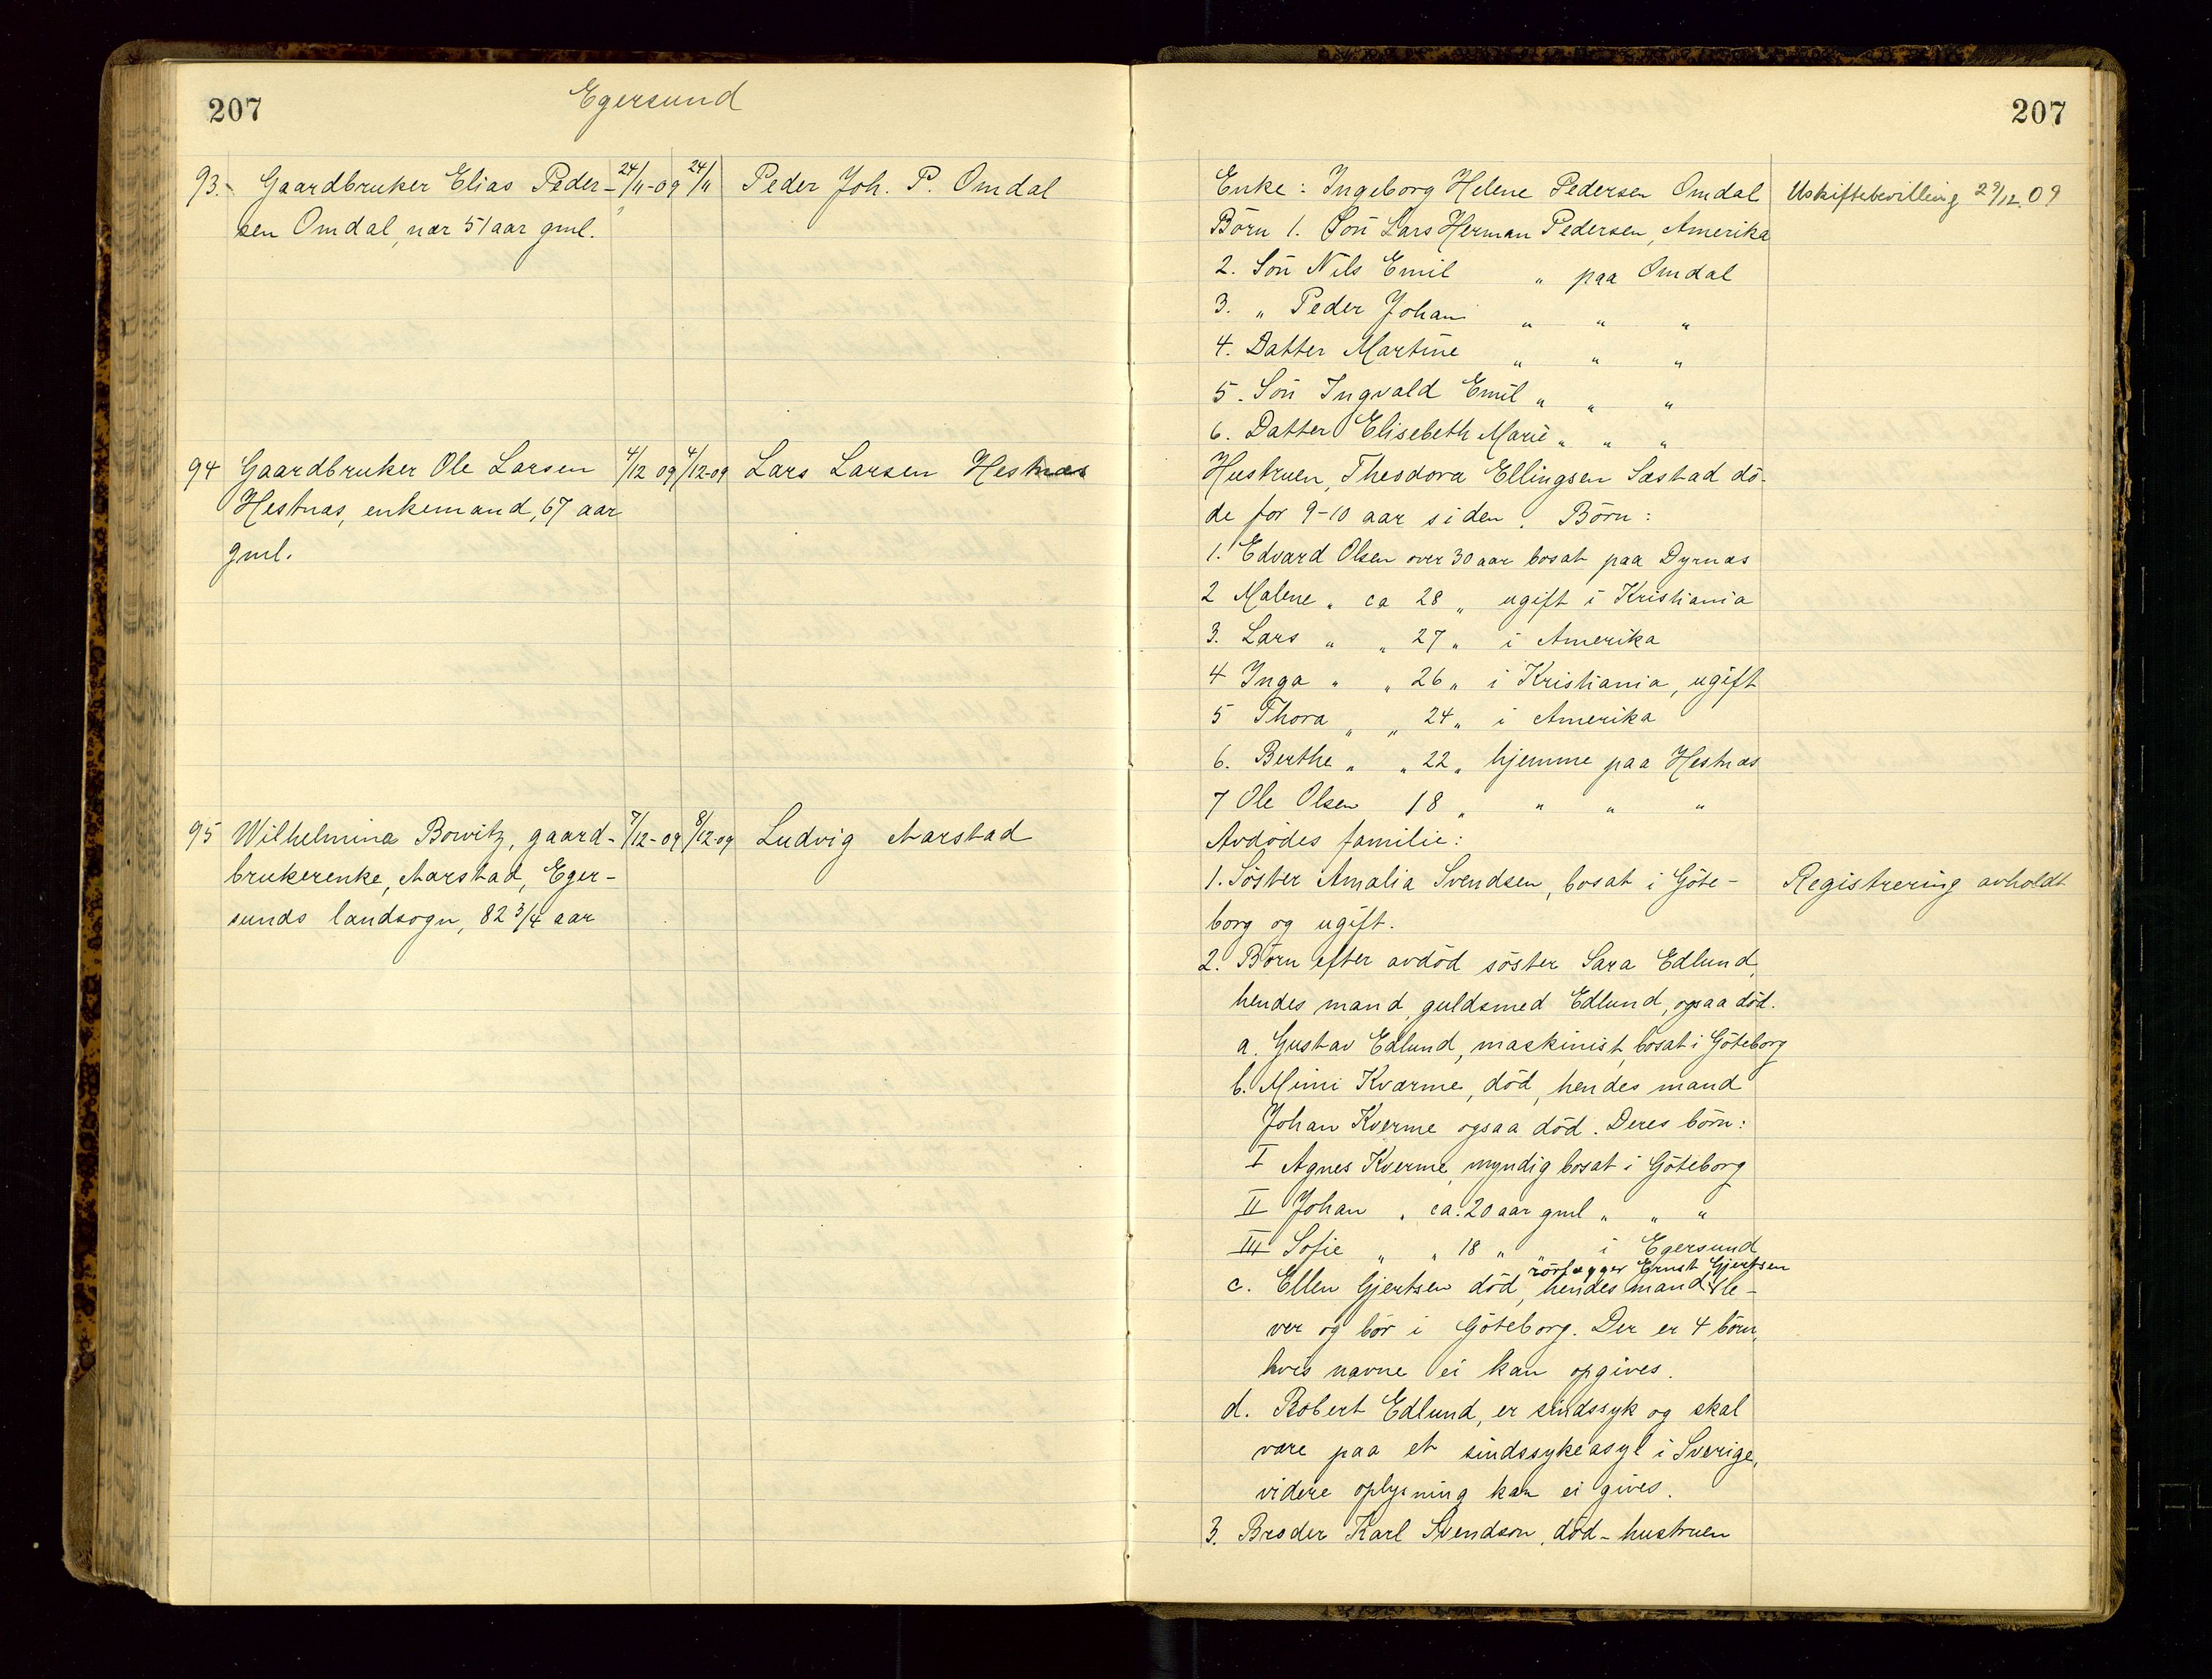 207
Egersund
93. Gaardbruker Elias Peder- 24/11-09 24/11 Peder Joh. P. Omdal
sen Omdal, nær 51 aar gml.
94 Gaardbruker Ole Larsen 4/12 09 4/12-09 Lars Larsen Hestnæs
Hestnæs, enkemand, 67 aar
gml.
95 Wilhelmina Bowitz, gaard- 7/12-09 8/12-09 Ludvig Aarstad
brukerenke, Aarstad, Eger-
sunds landsogn, 82 3/4 aar
207
Enke: Ingeborg Helene Pedersen Omdal Uskiftebevilling 29/12.09
Börn 1. Sön Lars Herman Pedersen, Amerika
2. Sön Nils Emil " paa Omdal
3. " Peder Johan " " "
4. Datter Martine " " "
5. Sön Ingvald Emil " " "
6. Datter Elisebeth Marie " " "
Hustruen, Theodora Ellingsen Sæstad dö-
de for 9-10 aar siden. Börn:
1. Edvard Olsen over 30 aar bosat paa Dyrnæs
2 Malene " ca 28 " ugift i Kristiania
3. Lars " " 27 " i Amerika
4 Inga " " 26 " i Kristiania, ugift
5 Thora " " 24 " i Amerika
6. Berthe " " 22 " hjemme paa Hestnæs
7 Ole Olsen 18 " " " "
Avdödes familie:
1. Söster Amalia Svendsen, bosat i Göte- Registrering avholdt
borg og ugift.
2. Börn efter avdöd söster Sara Edlund,
hendes mand, guldsmed Edlund, ogsaa död.
a. Gustav Edlund, maskinist, bosat i Göteborg
b. Mimi Kværme, död, hendes mand
Johan Kverme ogsaa död. Deres börn:
I Agnes Kverme, myndig bosat i Göteborg
II Johan " ca. 20 aar gml " " "
III Sofie " " 18 " " i Egersund
rörlægger Ernst Gjertsen
c. Ellen Gjertsen död, hendes mand le-
ver og bör i Göteborg. Der er 4 börn,
hvis navne ei kan opgives.
d. Robert Edlund, er sindssyk og skal
være paa et sindssykeasyl i Sverige,
videre oplysning kan ei gives.
3. Broder Karl Svendson, död - hustruen